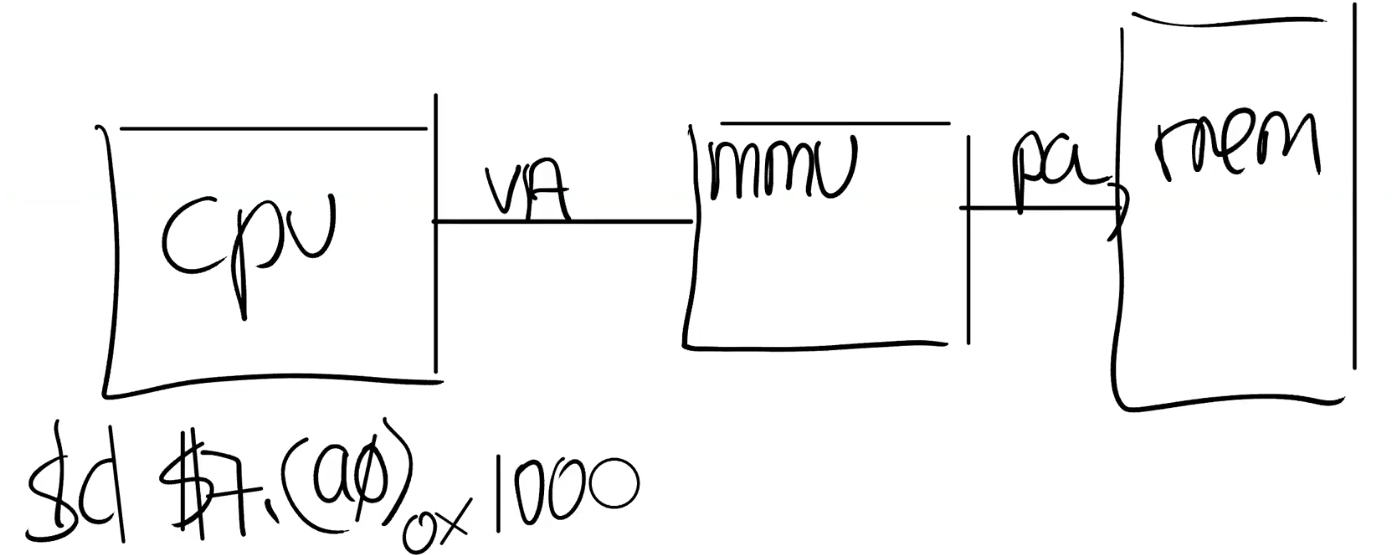 CPU
VA
MMU
pa
mem
sd $7,(a0) 0x1000